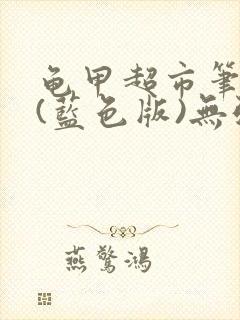 龟甲超市筆
(藍色版)無
燕驚鴻